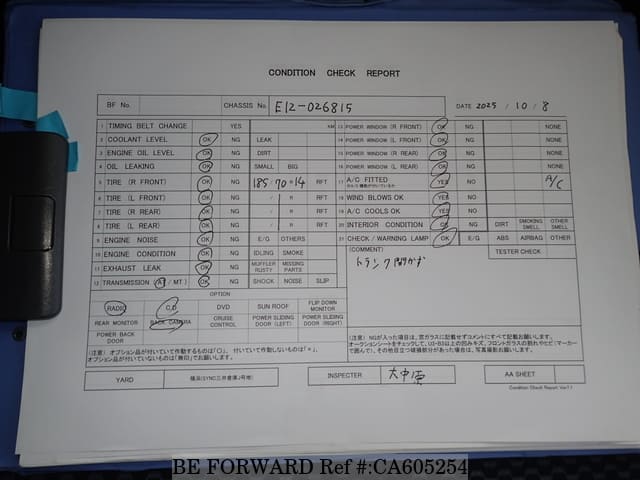 CONDITION CHECK REPORT
BF No. CHASSIS No. E12-026815 DATE 2025 / 10 / 8
1 TIMING BELT CHANGE YES KM
2 COOLANT LEVEL OK NG LEAK
3 ENGINE OIL LEVEL OK NG DIRT
4 OIL LEAKING OK NG SMALL BIG
5 TIRE (R FRONT) OK NG 185/70-14 RFT
6 TIRE (L FRONT) OK NG / R RFT
7 TIRE (R REAR) OK NG / R RFT
8 TIRE (L REAR) OK NG / R RFT
9 ENGINE NOISE OK NG E/G OTHERS
10 ENGINE CONDITION OK NG IDLING SMOKE
11 EXHAUST LEAK OK NG MUFFLER RUSTY MISSING PARTS
12 TRANSMISSION (AT / MT) OK NG SHOCK NOISE SLIP
13 POWER WINDOW (R FRONT) OK NG NONE
14 POWER WINDOW (L FRONT) OK NG NONE
15 POWER WINDOW (R REAR) OK NG NONE
16 POWER WINDOW (L REAR) OK NG NONE
17 A/C FITTED YES NO A/C
18 WIND BLOWS OK YES NO
19 A/C COOLS OK YES NO
20 INTERIOR CONDITION OK NG DIRT SMOKING SMELL OTHER SMELL
21 CHECK / WARNING LAMP OK E/G ABS AIRBAG OTHER
(COMMENT) TESTER CHECK
トランク開かず
OPTION
RADIO CD DVD SUN ROOF FLIP DOWN MONITOR
REAR MONITOR BACK CAMERA CRUISE CONTROL POWER SLIDING DOOR (LEFT) POWER SLIDING DOOR (RIGHT)
POWER BACK DOOR
(注意) オプション品が付いていて作動するものは「○」、付いていて作動しないものは「×」、
オプション品が付いていないものは「無印」でお願いします。
(注意) NGが入った項目は、空ガラスに記載せずコメントにすべて記載お願いします。
オークションシートをチェックして、U3・B3以上の凹みキズ、フロントガラスの割れやヒビ(マーカー
で囲んで)、その他目立つ破損部分があった場合は、写真撮影お願いします。
YARD 横浜(SYNC三井倉庫J号地) INSPECTER 大中原 AA SHEET
Condition Check Report Ver7.1
BE FORWARD Ref #:CA605254